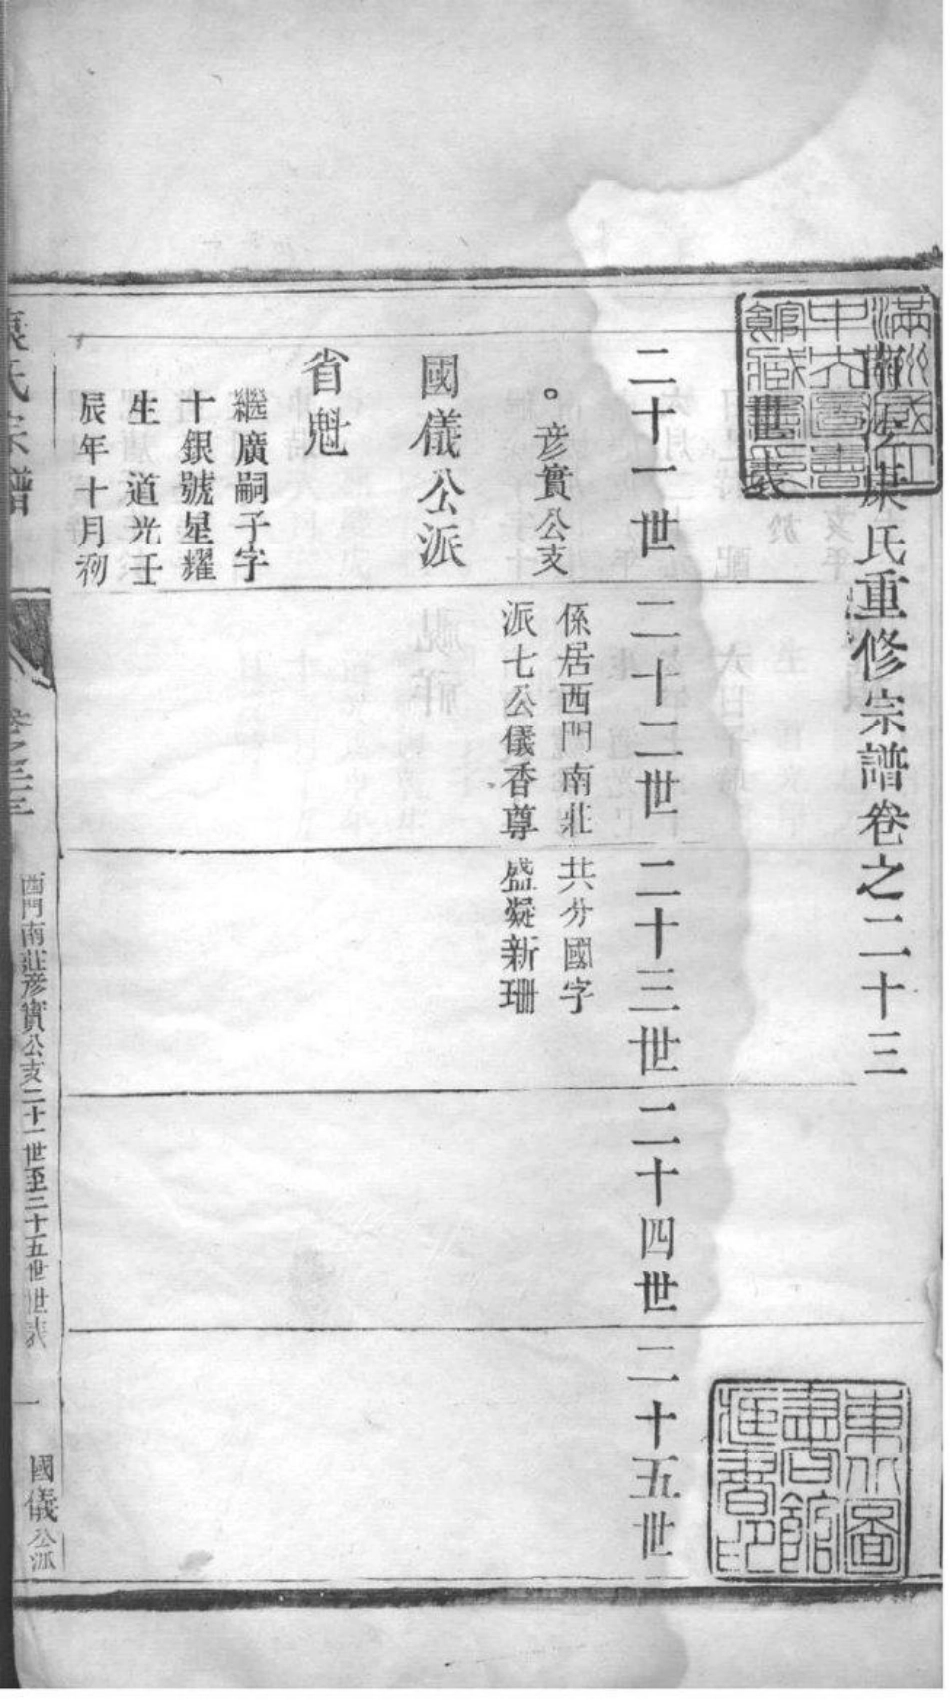 氏重修宗譜卷之二十三
世表
二十一世
二十二世
二十三世
二十四世
二十五世
彥實公支
係居西門南莊共分國字
派七公儀香尊盛凝新珊
國儀公派
省魁
繼廣嗣子字
十銀號星耀
生 道光壬
辰年十月初
氏宗譜
卷之二十三
西門南莊彥實公支二十一世至二十五世世表
一
國儀公派
滿洲國立中央圖書館藏書印
東北圖書館所藏書印